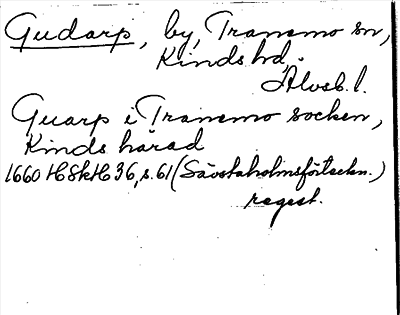 Gudarp, by, Tranemo sn,
Kinds hd,
Älvsb. l.
Guarp i Tranemo socken,
Kinds härad
1660 HSkH 36, s. 61 (Sävstaholmsförteckn.)
regest.